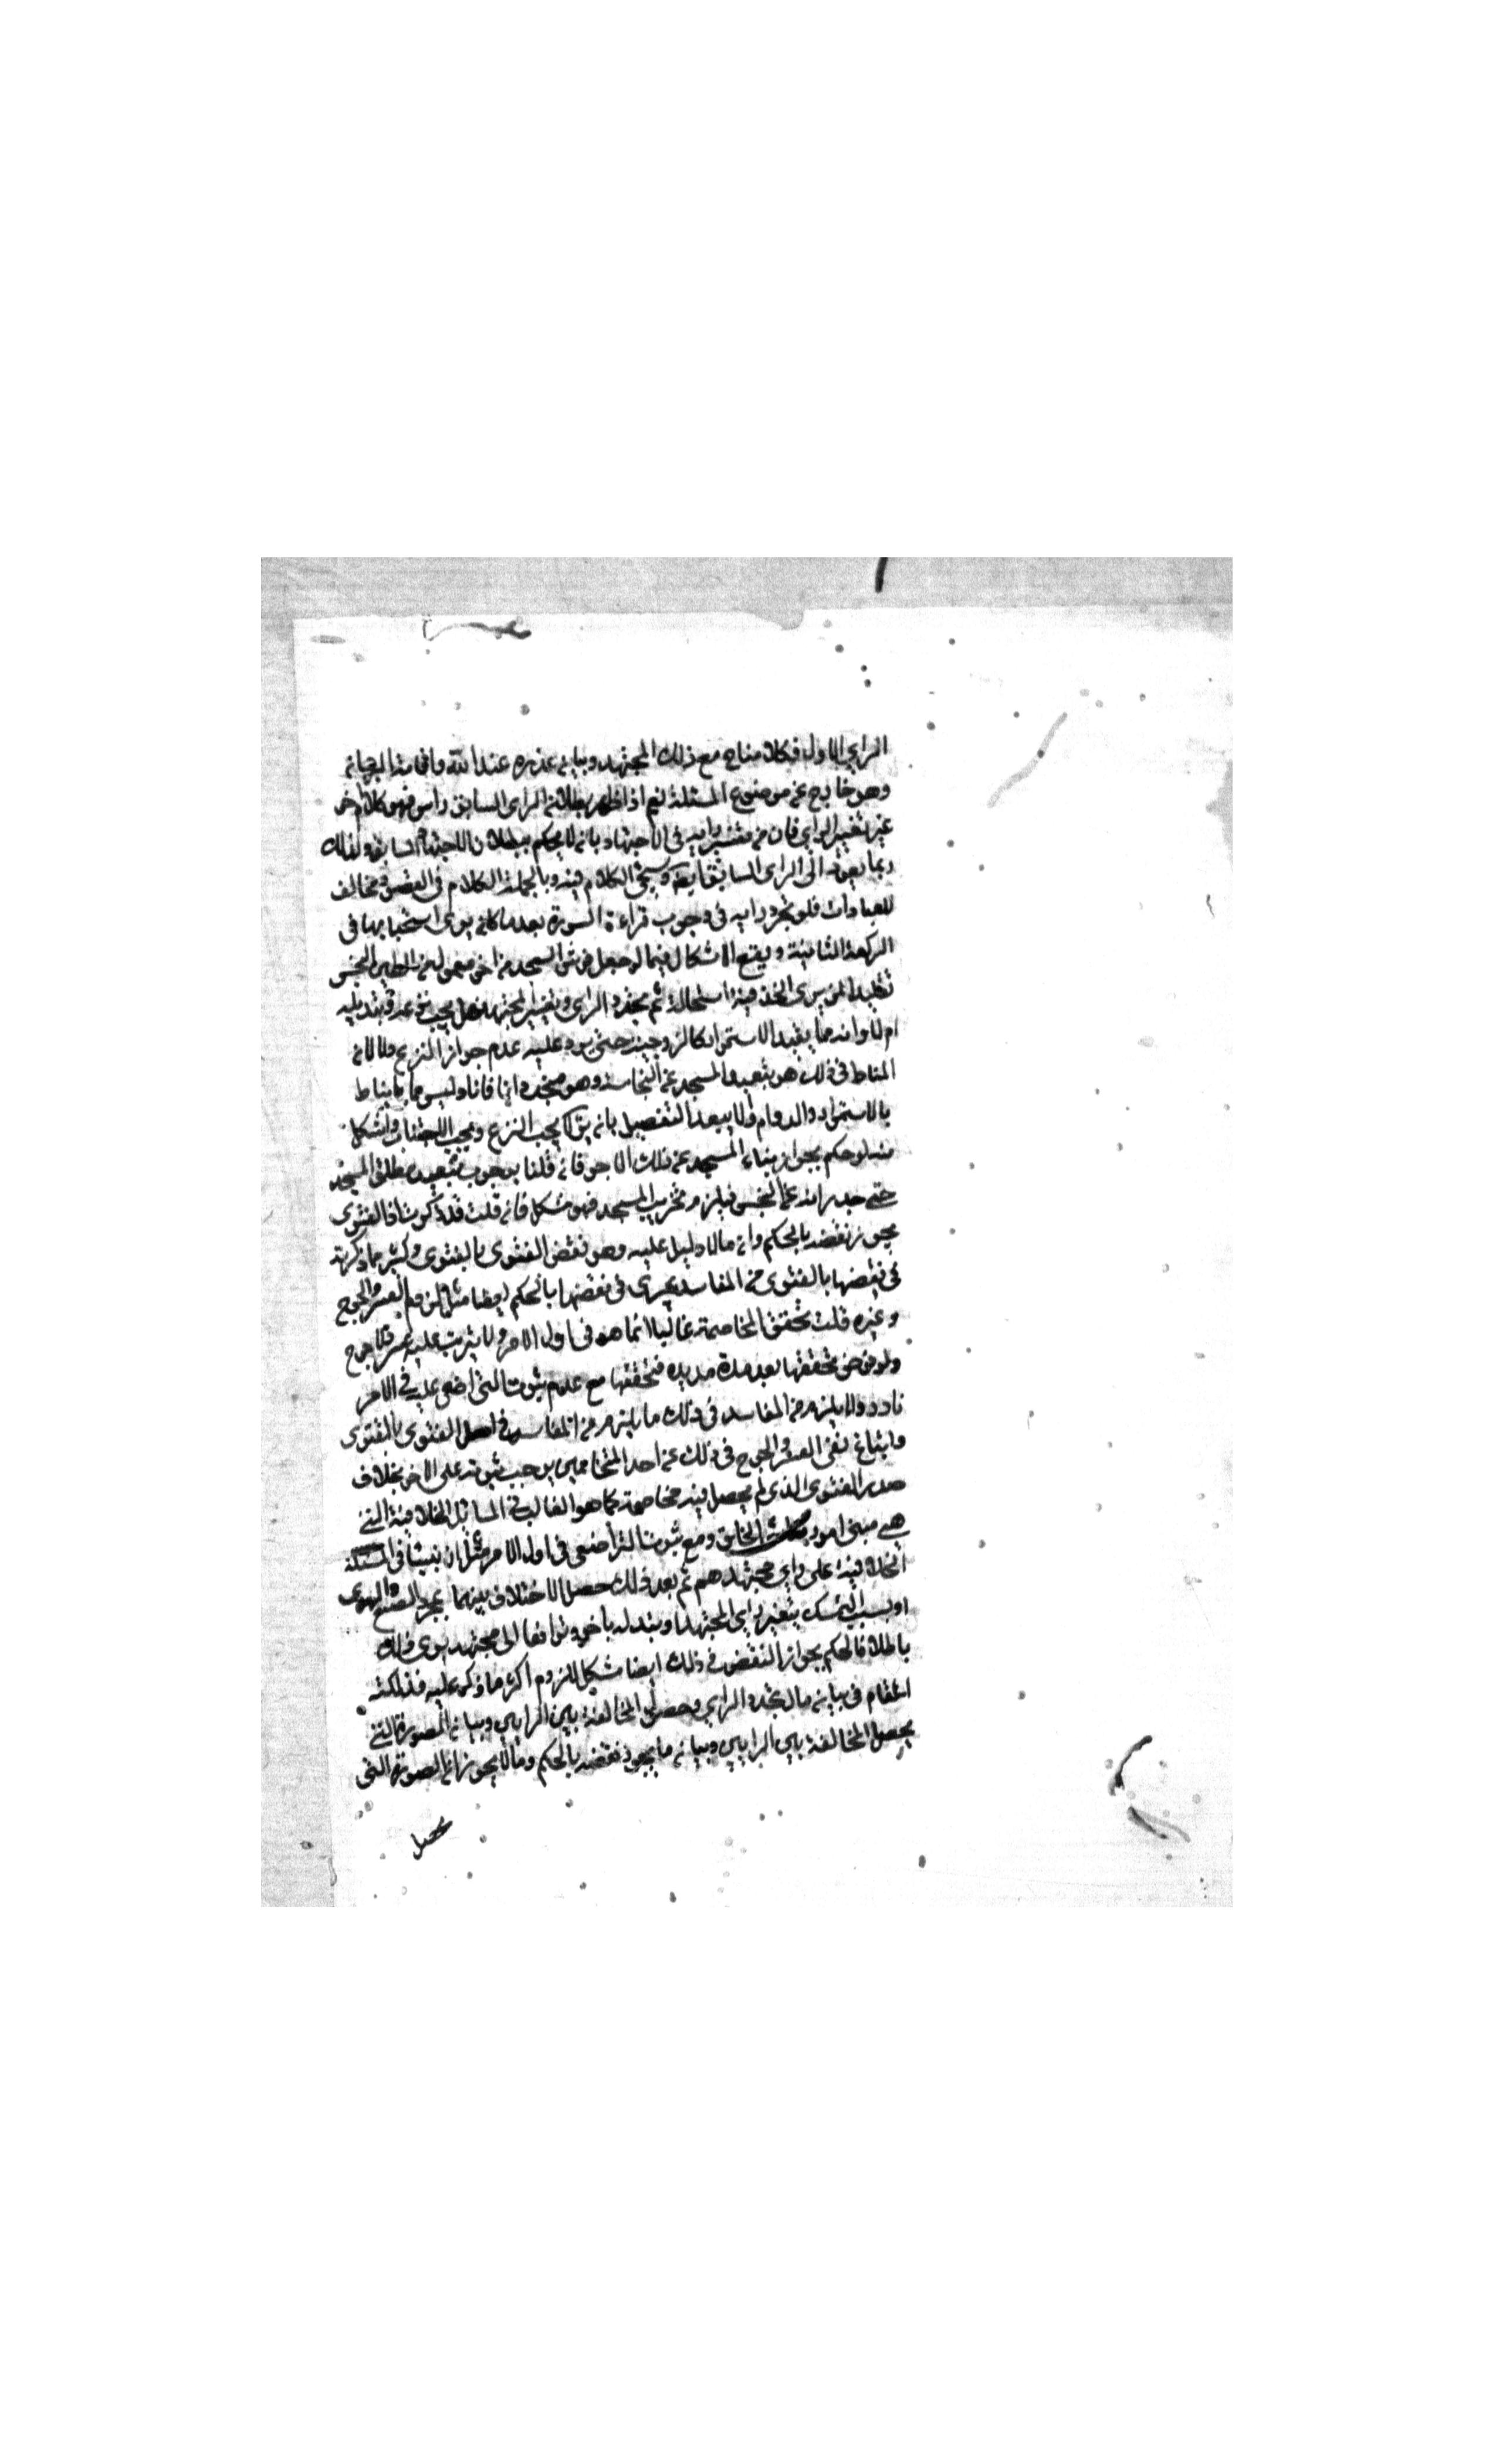 الراي الاول فكلامنا مع ذلك المجتهد وبيان عذره عند الله
وهو خارج عن موضوع المسئلة نعم اذا ظهر بطلان الراي السابق راسا فهو كلام اخر
غير تغيير الراي فان من تغير رايه في الاجتهاد بانه لا يحكم ببطلان الاجتهاد السابق ولذلك
ربما يعود الى الراي السابق ايضا وسيجئ الكلام فيه وبالجملة الكلام في النقض مخالف
للعبادات فلو تجدد رايه في وجوب قراءة السورة بعدما كان يرى استحبابها في
الركعة الثانية ويقع الاشكال فيما لو جعل فرش المسجد من اجر معمول من الطين النجس
تقليدا لمن يرى الخزفية استحالة ثم تجدد الراي وتغير المجتهد فهل يجب نزعه وتبديله
ام لا وانه مما يفيد الاستمرار كالزوجية حتى يرد عليه عدم جواز النزع ولا لان
المناط في ذلك هو تبعيد المسجد عن النجاسة وهو متجدد انا فانا وليس مما يناط
بالاستمرار والدوام ولا يبعد التفصيل بانه لا يجب النزع ويجب الاجتناب واشكل
منه لو حكم بجواز بناء المسجد عن ذلك الاجر فان قلنا بوجوب تبعيد مطلق المسجد
حتى جدرانه عن النجس فيلزم تخريب المسجد فهو مشكل فان قلت قد ذكرت ان الفتوى
يجوز نقضه بالحكم وان ما لا دليل عليه هو نقض الفتوى بالفتوى وكثير مما ذكرته
في نقضها بالفتوى من المفاسد يجري في نقضها بالحكم ايضا مثل لزوم العسر والحرج
وغيره قلت تحقق المخاصمة غالبا انما هو في اول الامر ولا يترتب عليه عسر ولا حرج
ولو فرض تحققها بعد مدة مديدة فتحققها مع عدم ثبوت التراضي عليه في الامر
نادر ولا يلزم من المفاسد في ذلك ما يلزم من المفاسد في اصل الفتوى بالفتوى
وابقاء نفي العسر والحرج في ذلك عن احد المتخاصمين يوجب ثبوته على الاخر بخلاف
صدر الفتوى الذي لم يحصل فيه مخاصمة كما هو الغالب في المسائل الخلافية التي
هي مبنى امور الخلايق ومع ثبوت التراضي في اول الامر مثل ان بنيا في المسئلة
الخلافية على راي مجتهدهم ثم بعد ذلك حصل الاختلاف بينهما بمجرد والهوى
او بسبب التمسك بتغير راي المجتهد او بتبدله باخر وترافعا الى مجتهد يرى ذلك
باطلا فالحكم بجواز النقض في ذلك ايضا مشكل للزوم اكثر ما ذكر عليه فذلكة
المقام في بيان مال تجدد الراي وحصول المخالفة بين الرايين وبيان الصورة التي
يحصل المخالفة بين الرايين وبيان ما يجوز نقضه بالحكم وما لا يجوز ان الصورة التي
يحصل